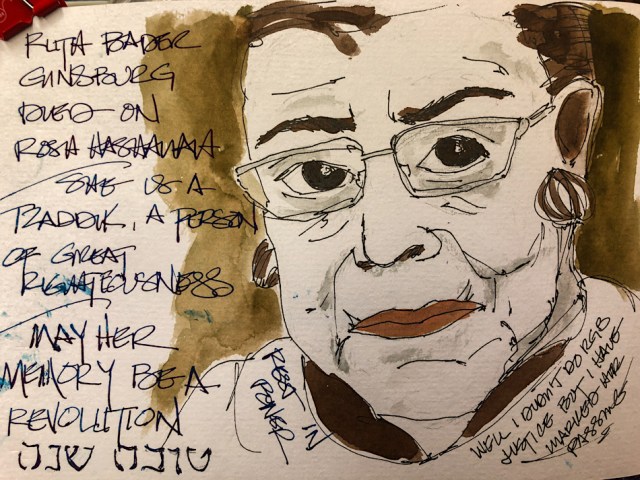 RUTH BADER
GINSBOURG
DIED ON
ROSH HASHANAH
SHE IS A
TZADDIK, A PERSON
OF GREAT
RIGHTEOUSNESS
MAY HER
MEMORY BE A
REVOLUTION
טובה שנה
REST IN
POWER
WELL I DIDN'T DO RGB
JUSTICE BUT I HAVE
MARKED HER
PASSING